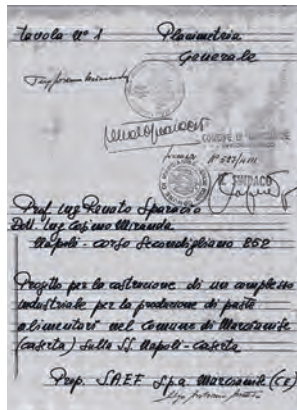 tavola nº 1 Planimetria
Generale
COMUNE DI
Nº 527/
IL SINDACO
Prof. Ing. Renato Sparacio
Dott. Ing. Cosimo Miranda
Napoli - corso Secondigliano 252
Progetto per la costruzione di un complesso
industriale per la produzione di paste
alimentari nel Comune di Marcianise
(caserta) sulla SS. Napoli - Caserta
Prop. SAEF S.p.a. Marcianise (CE)